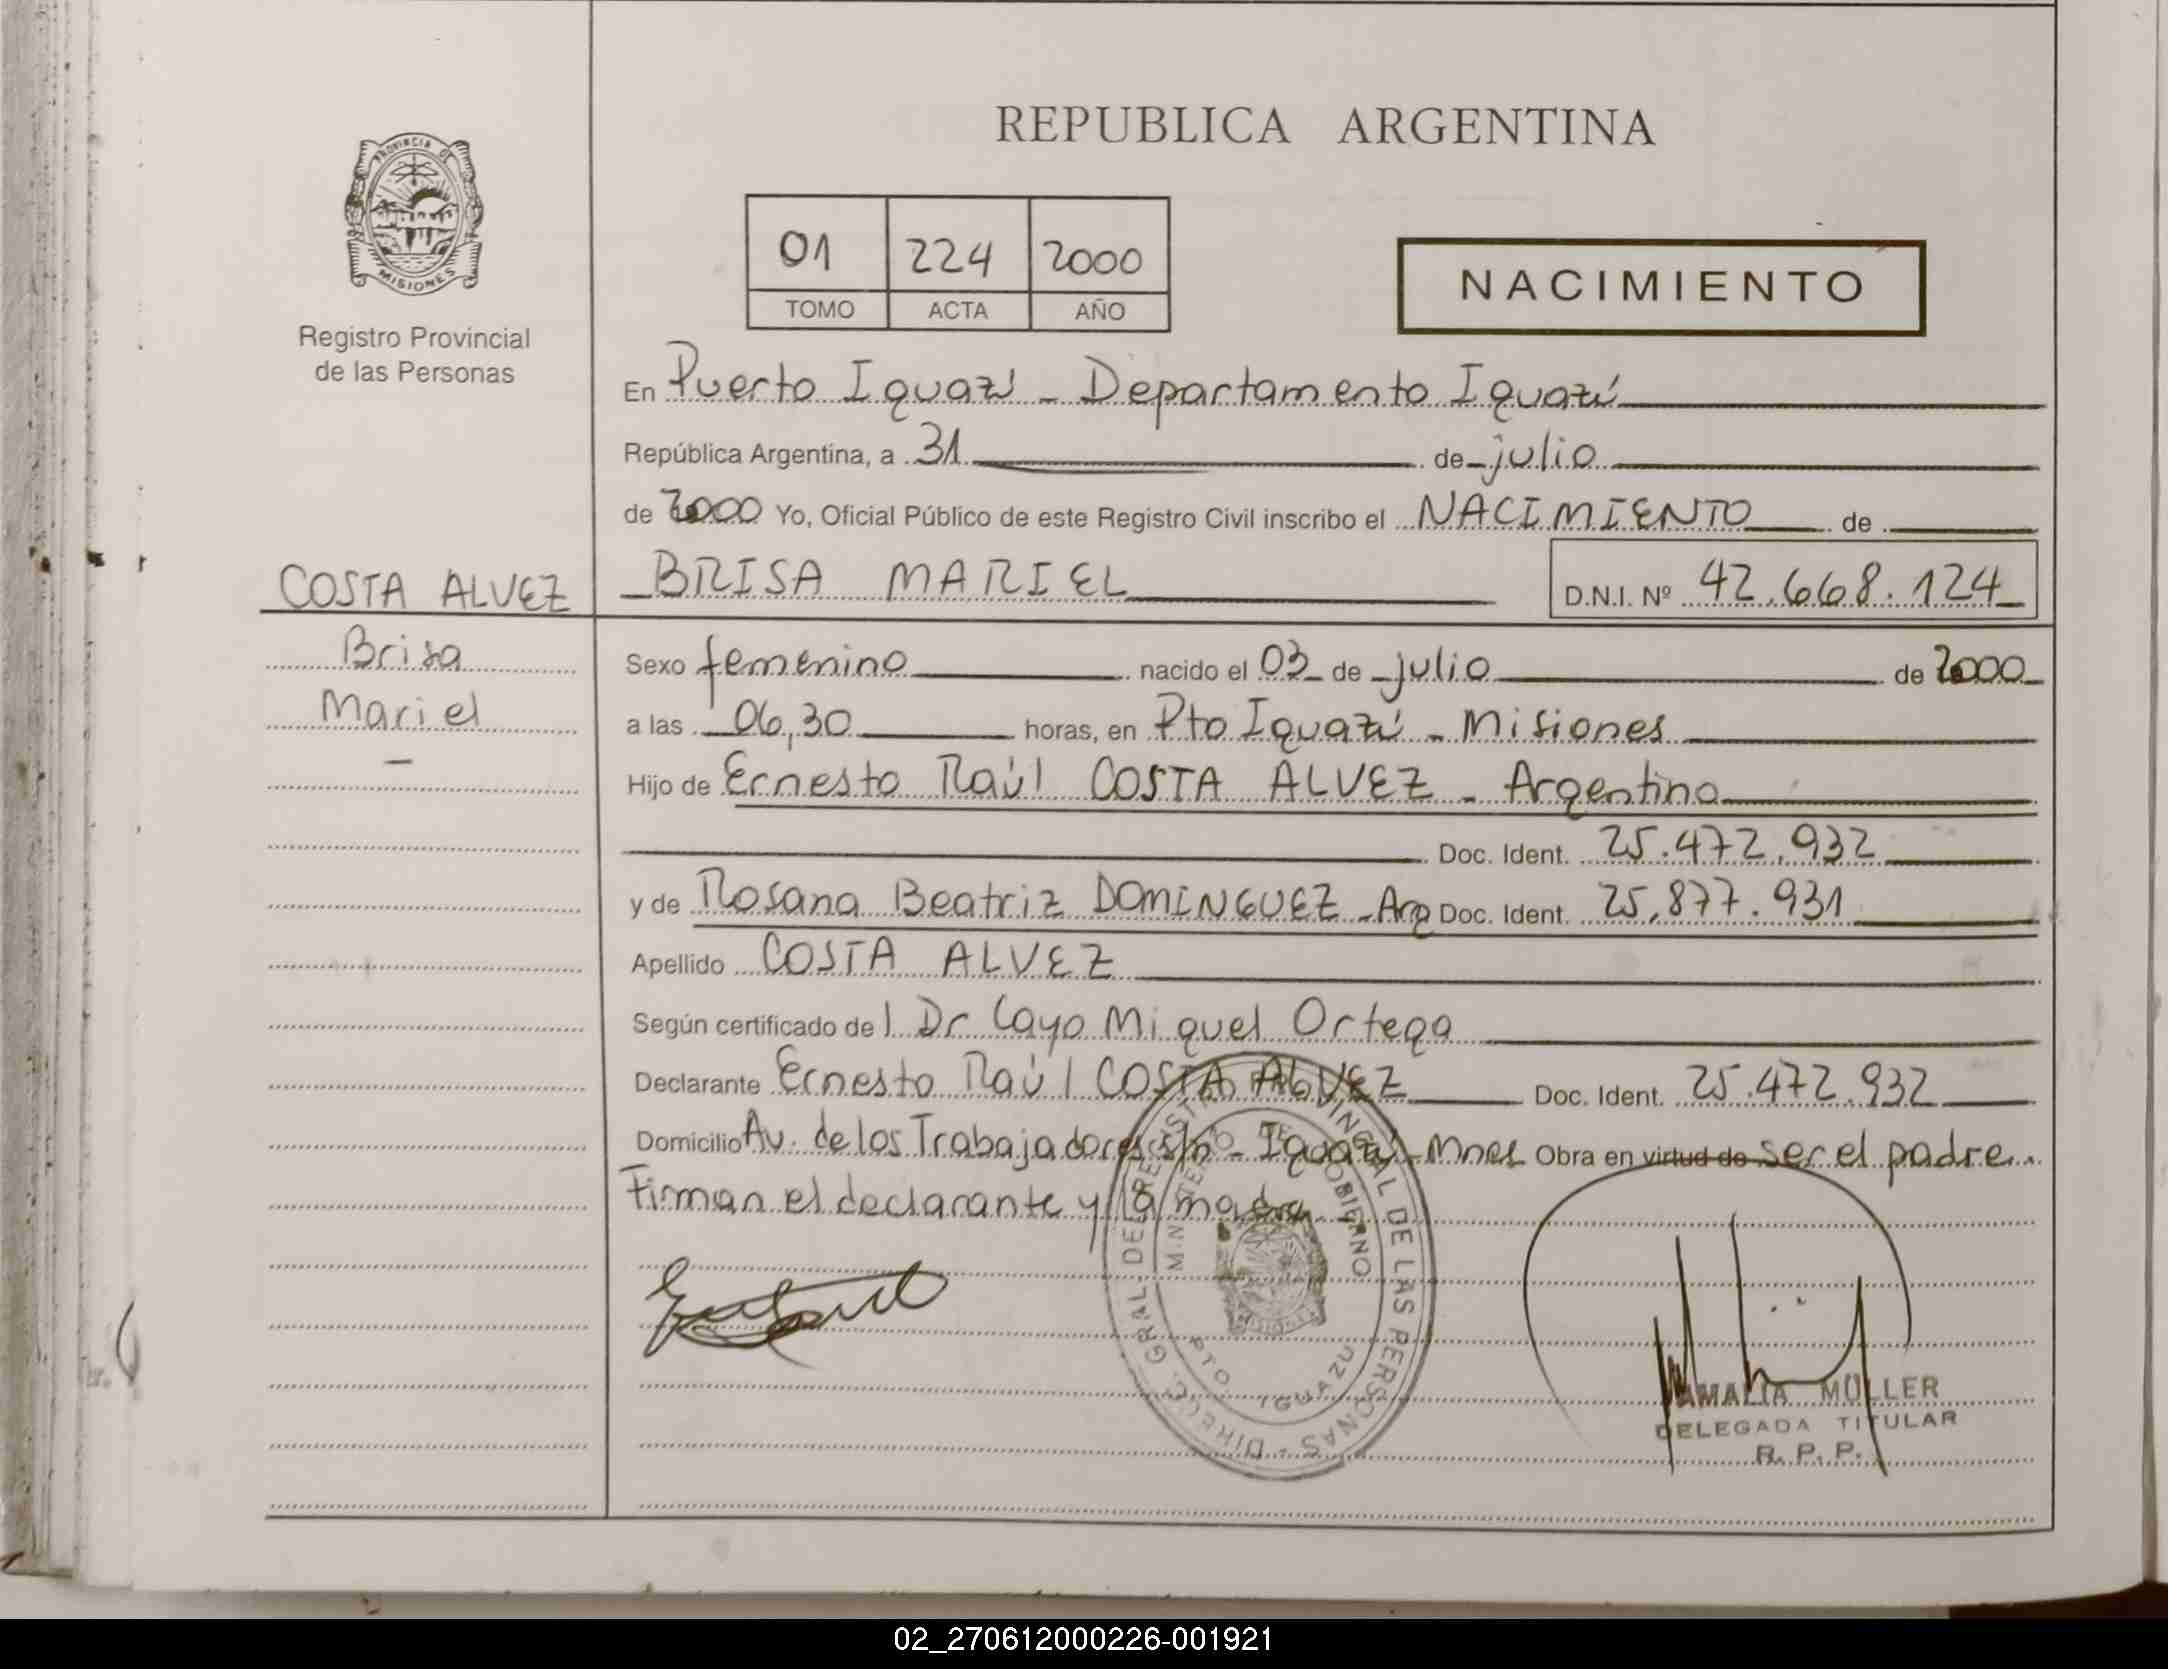 REPUBLICA ARGENTINA
PROVINCIA DE MISIONES
Registro Provincial
de las Personas
01 224 2000
TOMO ACTA AÑO
NACIMIENTO
En Puerto Iguazú - Departamento Iguazú
República Argentina, a 31 de julio
de 2000 Yo, Oficial Público de este Registro Civil inscribo el NACIMIENTO de
COSTA ALVEZ BRISA MARIEL D.N.I. Nº 42.668.124
Brisa
Mariel
Sexo femenino nacido el 03 de julio de 2000
a las 06,30 horas, en Pto Iguazú - Misiones
Hijo de Ernesto Raúl COSTA ALVEZ - Argentino
Doc. Ident. 25.472.932
y de Rosana Beatriz DOMINGUEZ - Arg Doc. Ident. 25.877.931
Apellido COSTA ALVEZ
Según certificado de l Dr Cayo Miguel Ortega
Declarante Ernesto Raúl COSTA ALVEZ Doc. Ident. 25.472.932
Domicilio Av. de los Trabajadores s/n - Iguazú - Mnes Obra en virtud de ser el padre.
Firman el declarante y la madre
DIRECC. GRAL. DEL REGISTRO PROVINCIAL DE LAS PERSONAS
MINISTERIO DE GOBIERNO
PTO. IGUAZU
AMALIA MULLER
DELEGADA TITULAR
R. P. P.
02_270612000226-001921